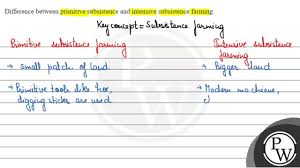 Difference between primitive subsistence and intensive subsistence farming
Key concept = Subsistence farming
Primitive subsistence farming
Intensive subsistence farming
→ Small patch of land.
→ Bigger land
→ Primitive tools like hoe, digging sticks are used
→ Modern machiene,
PW